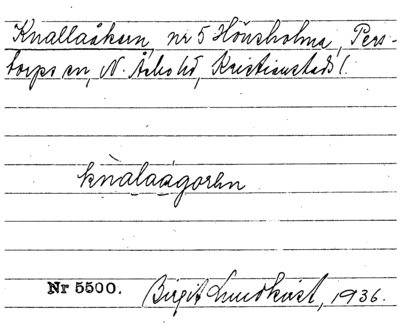 Knallaåkern, nr 5 Hönsholma, Pers-
torps sn, N. Åsbo hd, Kristianstads l.
knalaågoren
Nr 5500. Birgit Lundkvist, 1936.